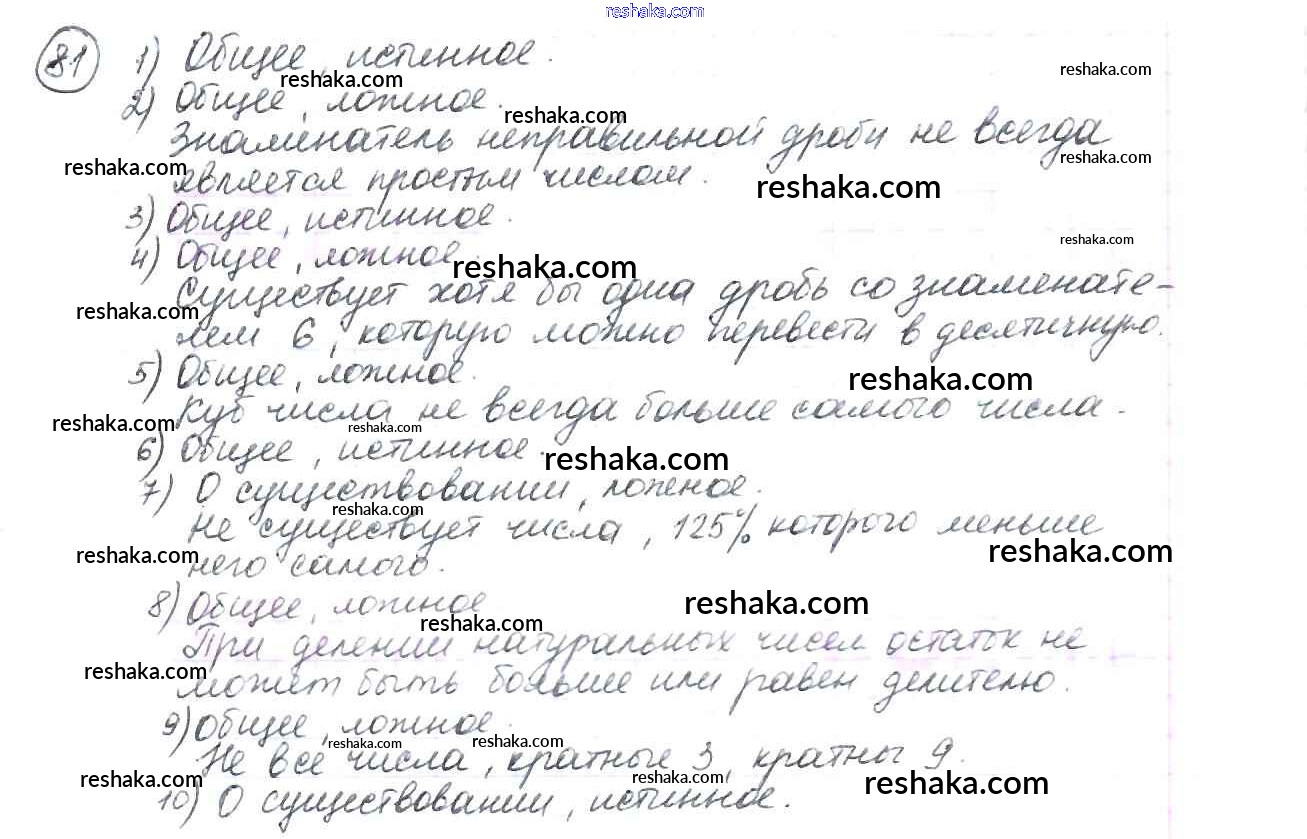 reshaka.com
81
1) Общее, истинное.
reshaka.com
reshaka.com
2) Общее, ложное.
reshaka.com
Знаменатель неправильной дроби не всегда
reshaka.com
reshaka.com
является простым числом.
reshaka.com
3) Общее, истинное.
reshaka.com
4) Общее, ложное.
reshaka.com
Существует хотя бы одна дробь со знаменате-
reshaka.com
лем 6, которую можно перевести в десятичную.
5) Общее, ложное.
reshaka.com
Куб числа не всегда больше самого числа.
reshaka.com
reshaka.com
6) Общее, истинное.
reshaka.com
7) О существовании, ложное.
reshaka.com
Не существует числа, 125% которого меньше
reshaka.com
reshaka.com
него самого.
8) Общее, ложное
reshaka.com
reshaka.com
При делении натуральных чисел остаток не
reshaka.com
может быть больше или равен делителю.
9) Общее, ложное.
reshaka.com
reshaka.com
Не все числа, кратные 3, кратны 9.
reshaka.com
reshaka.com
reshaka.com
10) О существовании, истинное.